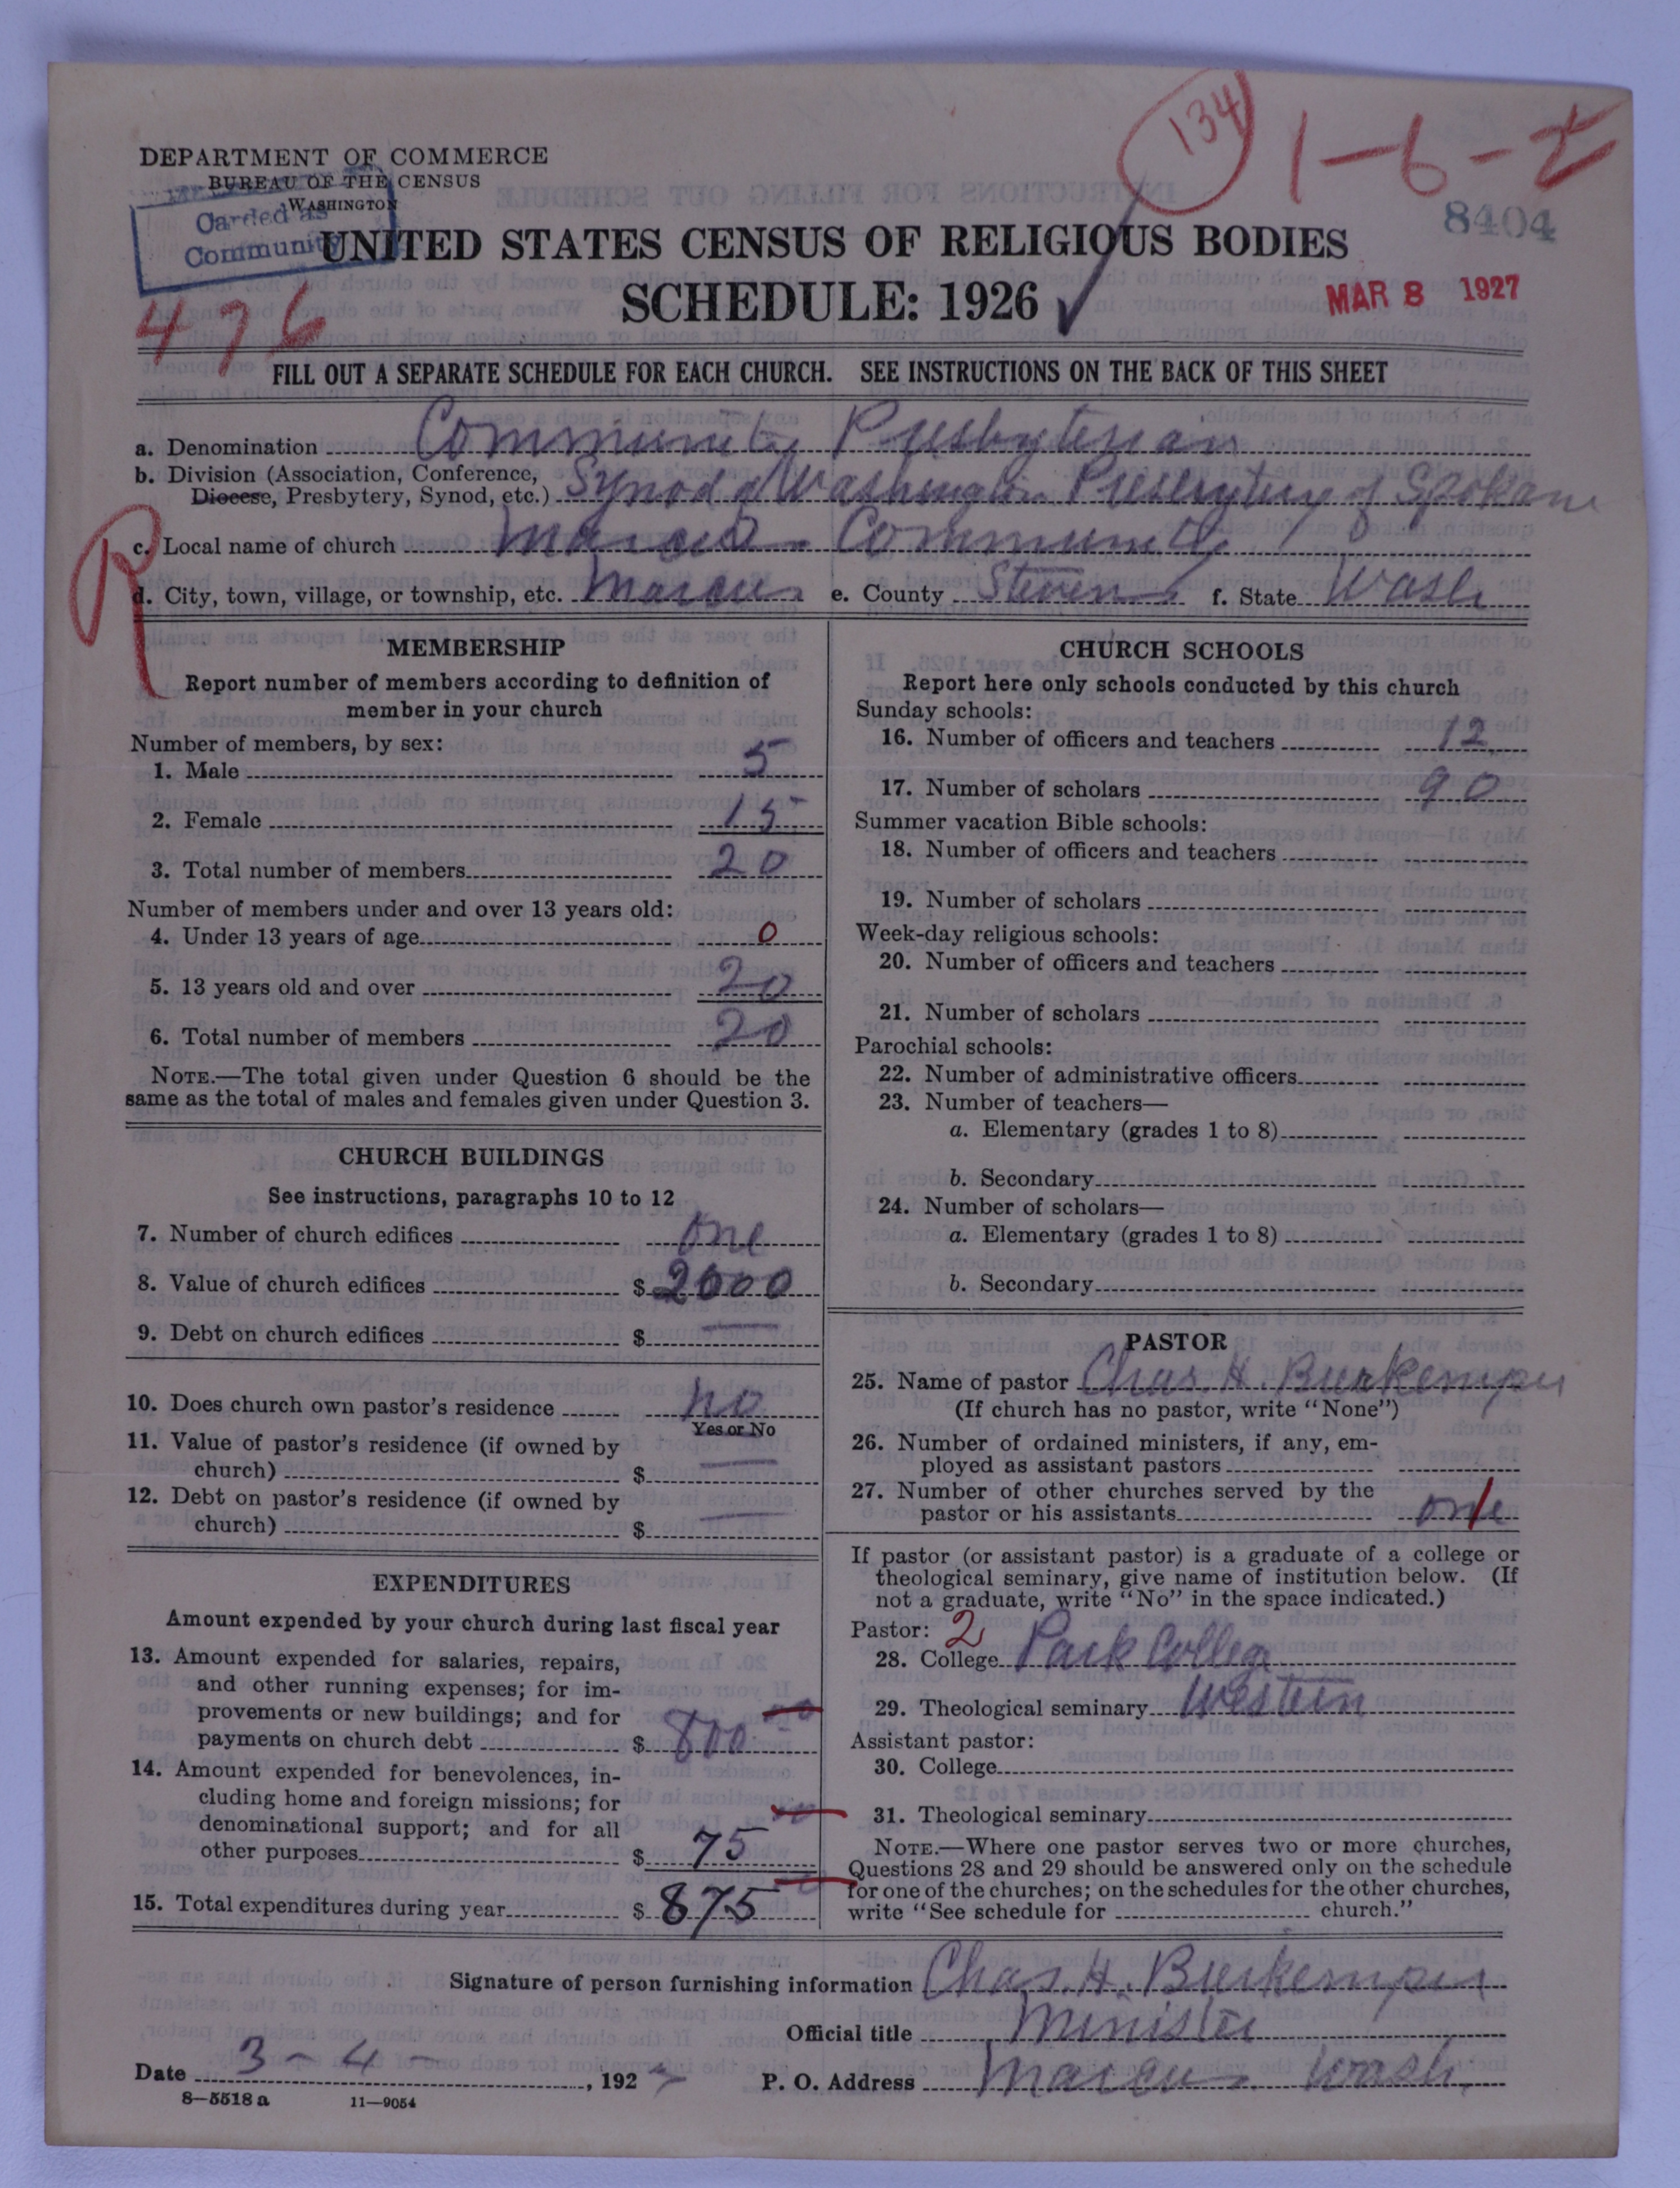 134
1-6-2
DEPARTMENT OF COMMERCE
BUREAU OF THE CENSUS
WASHINGTON
Carded as
Community
8404
UNITED STATES CENSUS OF RELIGIOUS BODIES
SCHEDULE: 1926
MAR 8 1927
476
FILL OUT A SEPARATE SCHEDULE FOR EACH CHURCH. SEE INSTRUCTIONS ON THE BACK OF THIS SHEET
a. Denomination Community Presbyterian
b. Division (Association, Conference,
Diocese, Presbytery, Synod, etc.) Synod of Washington Presbytery of Spokane
R
c. Local name of church Marcus Community
d. City, town, village, or township, etc. Marcus e. County Stevens f. State Wash
MEMBERSHIP
Report number of members according to definition of
member in your church
Number of members, by sex:
1. Male 5
2. Female 15
3. Total number of members 20
Number of members under and over 13 years old:
4. Under 13 years of age 0
5. 13 years old and over 20
6. Total number of members 20
NOTE.—The total given under Question 6 should be the
same as the total of males and females given under Question 3.
CHURCH BUILDINGS
See instructions, paragraphs 10 to 12
7. Number of church edifices one
8. Value of church edifices $ 2000
9. Debt on church edifices $ —
10. Does church own pastor's residence no
Yes or No
11. Value of pastor's residence (if owned by
church) $ —
12. Debt on pastor's residence (if owned by
church) $ —
EXPENDITURES
Amount expended by your church during last fiscal year
13. Amount expended for salaries, repairs,
and other running expenses; for im-
provements or new buildings; and for
payments on church debt $ 800
14. Amount expended for benevolences, in-
cluding home and foreign missions; for
denominational support; and for all
other purposes $ 75
15. Total expenditures during year $ 875
CHURCH SCHOOLS
Report here only schools conducted by this church
Sunday schools:
16. Number of officers and teachers 12
17. Number of scholars 90
Summer vacation Bible schools:
18. Number of officers and teachers
19. Number of scholars
Week-day religious schools:
20. Number of officers and teachers
21. Number of scholars
Parochial schools:
22. Number of administrative officers
23. Number of teachers—
a. Elementary (grades 1 to 8)
b. Secondary
24. Number of scholars—
a. Elementary (grades 1 to 8)
b. Secondary
PASTOR
25. Name of pastor Chas H. Burkemper
(If church has no pastor, write "None")
26. Number of ordained ministers, if any, em-
ployed as assistant pastors
27. Number of other churches served by the
pastor or his assistants one
If pastor (or assistant pastor) is a graduate of a college or
theological seminary, give name of institution below. (If
not a graduate, write "No" in the space indicated.)
Pastor: 2
28. College Park College
29. Theological seminary Western
Assistant pastor:
30. College
31. Theological seminary
NOTE.—Where one pastor serves two or more churches,
Questions 28 and 29 should be answered only on the schedule
for one of the churches; on the schedules for the other churches,
write "See schedule for church."
Signature of person furnishing information Chas. H. Burkemper
Official title Minister
Date 3 - 4 - , 1927 P. O. Address Marcus Wash.
8—5518 a 11—9054